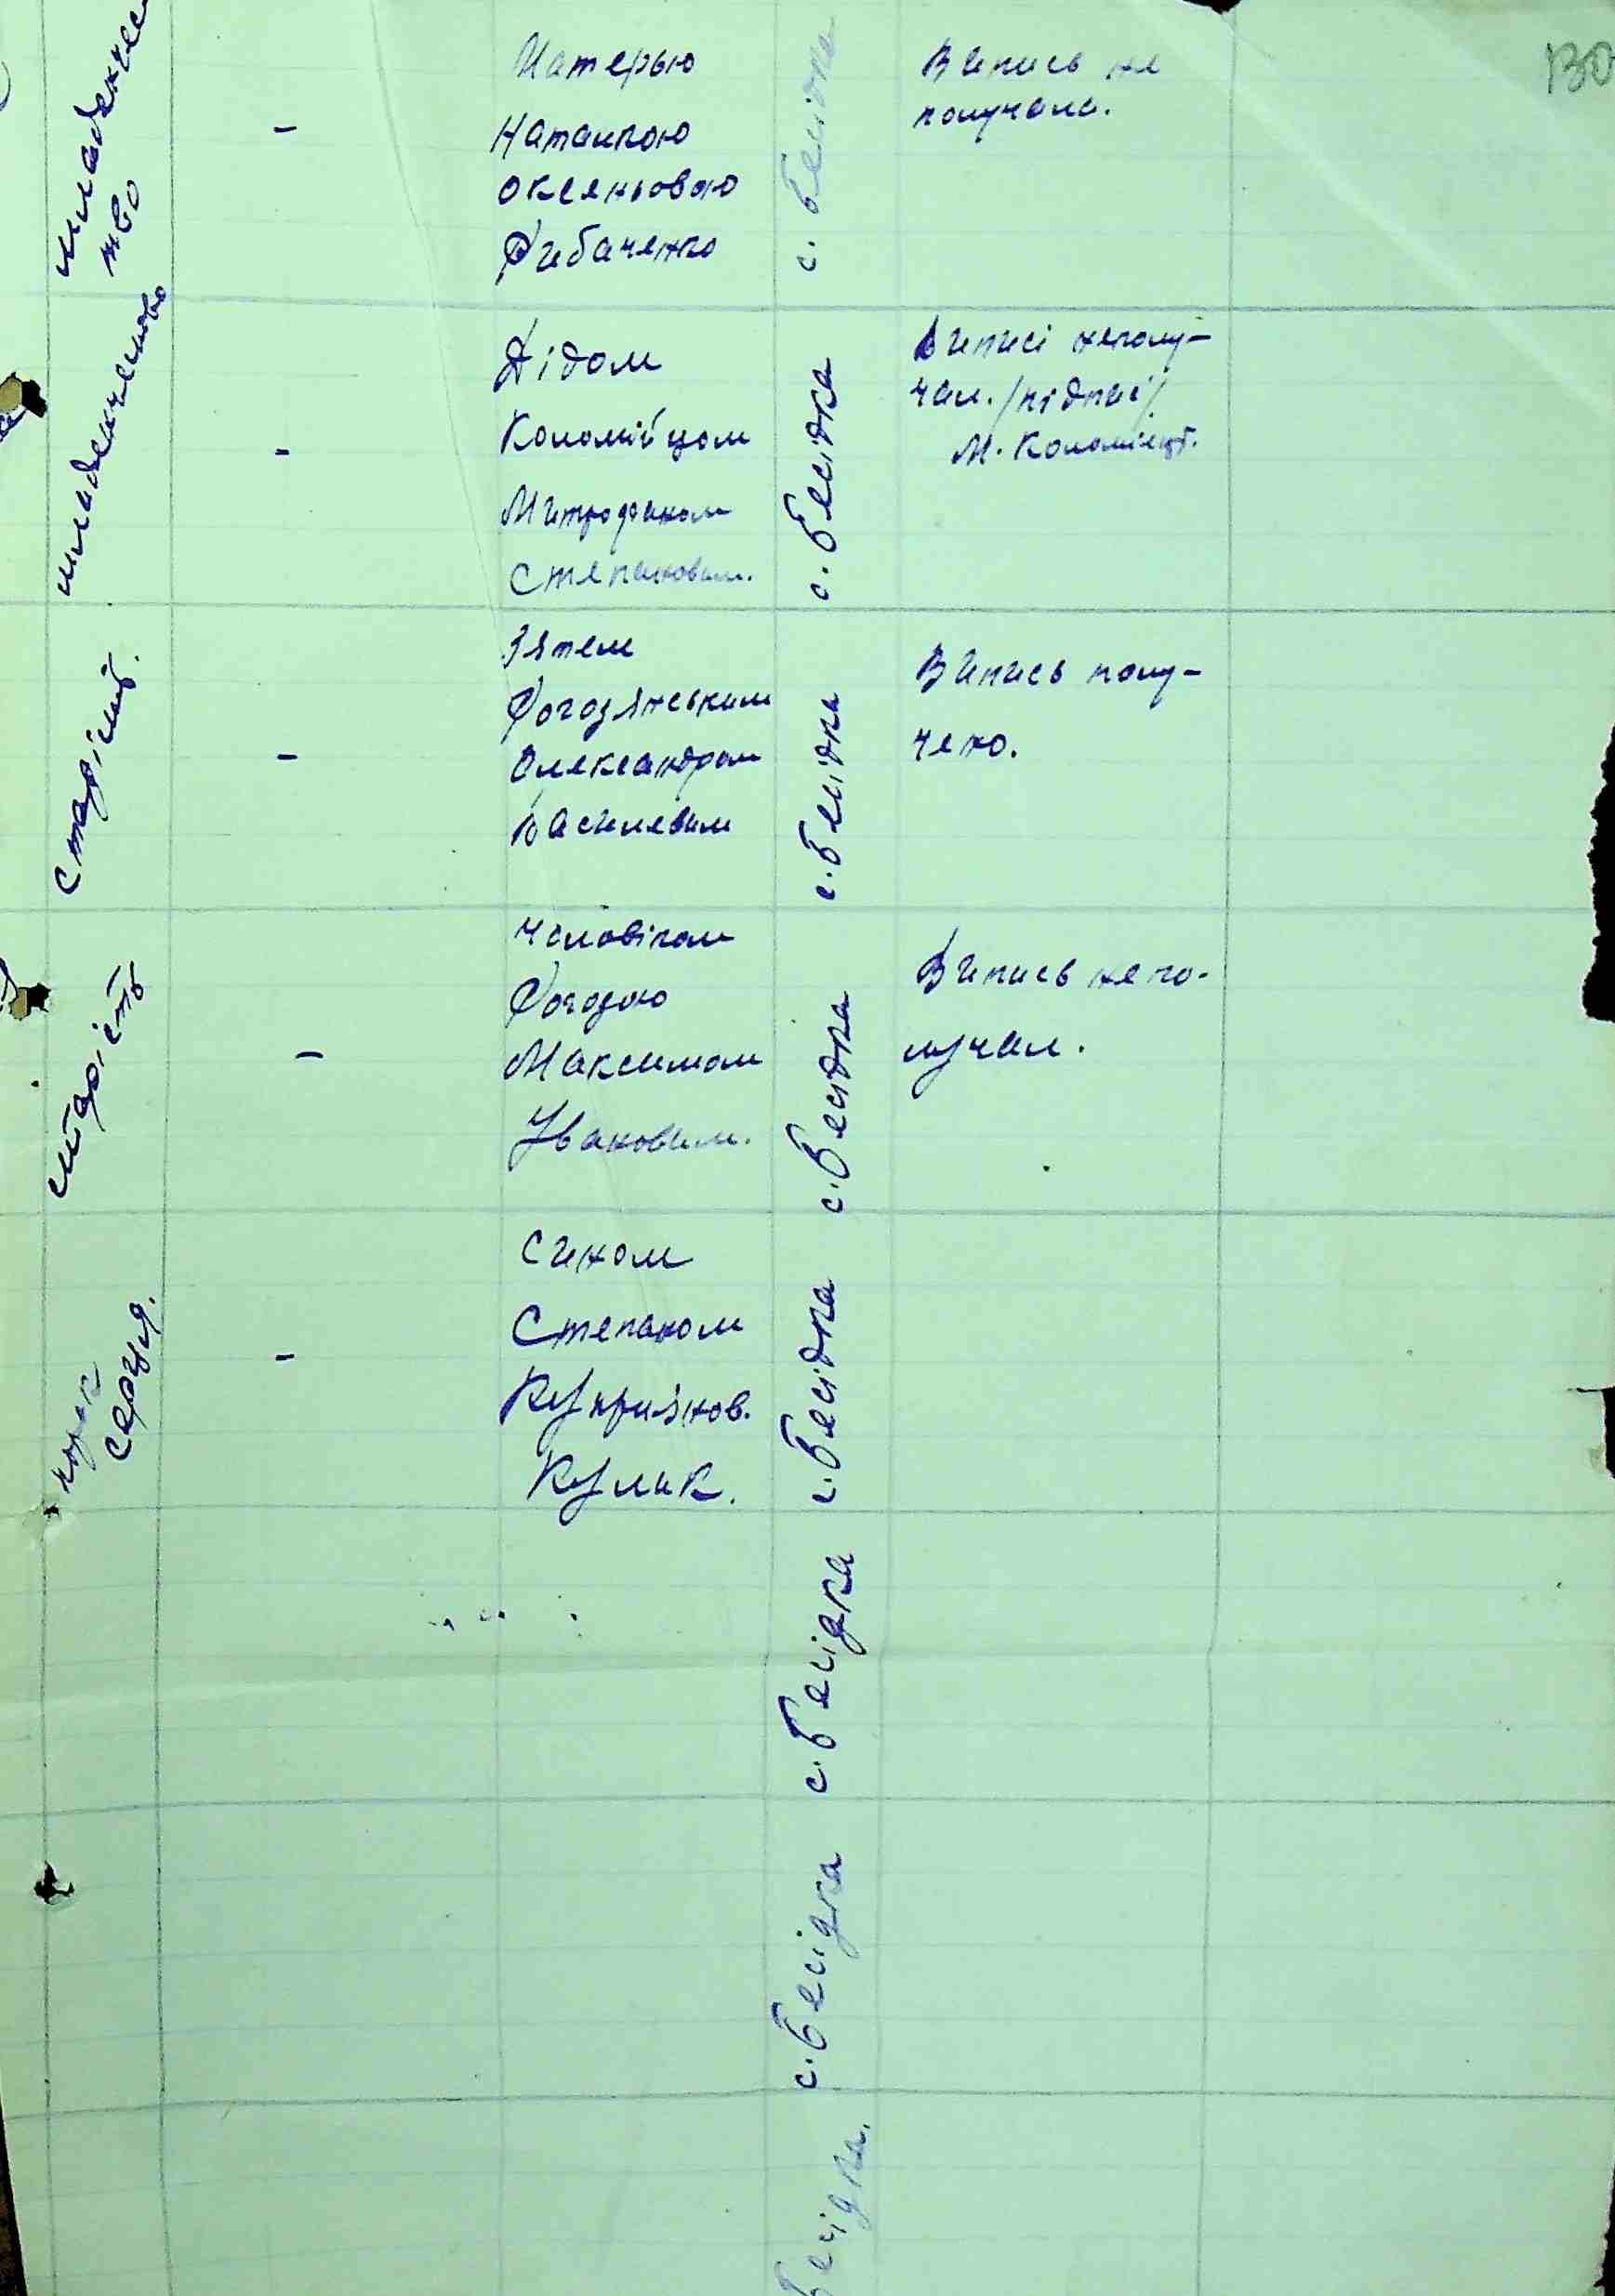 130
младенчес
тво
–
Матерью
Наталкою
Оксеньовою
Рибаченко
с. Бесідка
Випись не
получала.
младенчество
–
Дідом
Коломійцом
Митрофаном
Степановим.
с. Бесідка
Виписі неполу-
чал. /підписі/
М. Коломієць.
Старість.
–
Зятем
Рогозянським
Олександром
Василевим
с. Бесідка
Випись полу-
чено.
старість
–
Чоловіком
Рогозою
Максимом
Ивановим.
с. Бесідка
Випись непо-
лучал.
порок
серця.
–
Сином
Степаном
Куприянов.
Кулик.
с. Бесідка
с. Бесідка
с. Бесідка
Бесідка.